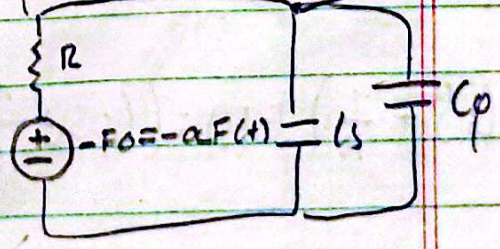 R
+
-
-F0=-αF(t)
Cs
Cφ